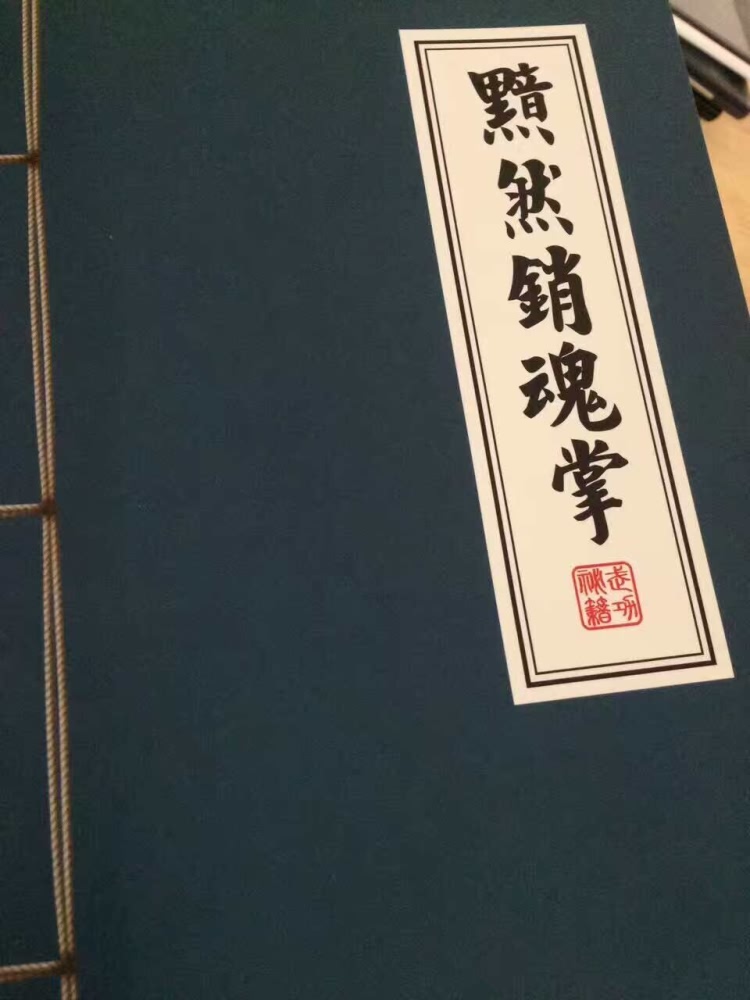 黯然銷魂掌
武功
秘籍